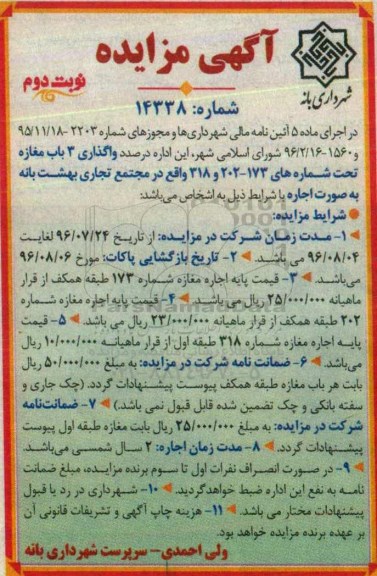 آگهی مزایده
نوبت دوم
شهرداری بانه
شماره: ۱۴۳۳۸
در اجرای ماده ۵ آئین نامه مالی شهرداری‌ها و مجوزهای شماره ۲۲۰۳-۹۵/۱۱/۱۸
و ۱۵۶۰-۹۶/۲/۱۶ شورای اسلامی شهر، این اداره درصدد واگذاری ۳ باب مغازه
تحت شماره های ۱۷۳-۲۰۲ و ۳۱۸ واقع در مجتمع تجاری بهشت بانه
به صورت اجاره با شرایط ذیل به اشخاص می‌باشد:
شرایط مزایده:
۱- مدت زمان شرکت در مزایده: از تاریخ ۹۶/۰۷/۲۴ لغایت
۹۶/۰۸/۰۴ می باشد. ۲- تاریخ بازگشایی پاکات: مورخ ۹۶/۰۸/۰۶
می‌باشد. ۳- قیمت پایه اجاره مغازه شماره ۱۷۳ طبقه همکف از قرار
ماهیانه ۲۵/۰۰۰/۰۰۰ ریال می باشد. ۴- قیمت پایه اجاره مغازه شماره
۲۰۲ طبقه همکف از قرار ماهیانه ۲۳/۰۰۰/۰۰۰ ریال می باشد. ۵- قیمت
پایه اجاره مغازه شماره ۳۱۸ طبقه اول از قرار ماهیانه ۱۰/۰۰۰/۰۰۰ ریال
می‌باشد. ۶- ضمانت نامه شرکت در مزایده: به مبلغ ۵۰/۰۰۰/۰۰۰ ریال
بابت هر باب مغازه طبقه همکف پیوست پیشنهادات گردد. (چک جاری و
سفته بانکی و چک تضمین شده قابل قبول نمی باشد.) ۷- ضمانت‌نامه
شرکت در مزایده: به مبلغ ۲۵/۰۰۰/۰۰۰ ریال بابت مغازه طبقه اول پیوست
پیشنهادات گردد. ۸- مدت زمان اجاره: ۲ سال شمسی می‌باشد.
۹- در صورت انصراف نفرات اول تا سوم برنده مزایده، مبلغ ضمانت
نامه به نفع این اداره ضبط خواهد گردید. ۱۰- شهرداری در رد یا قبول
پیشنهادات مختار می باشد. ۱۱- هزینه چاپ آگهی و تشریفات قانونی آن
بر عهده برنده مزایده خواهد بود.
ولی احمدی- سرپرست شهرداری بانه